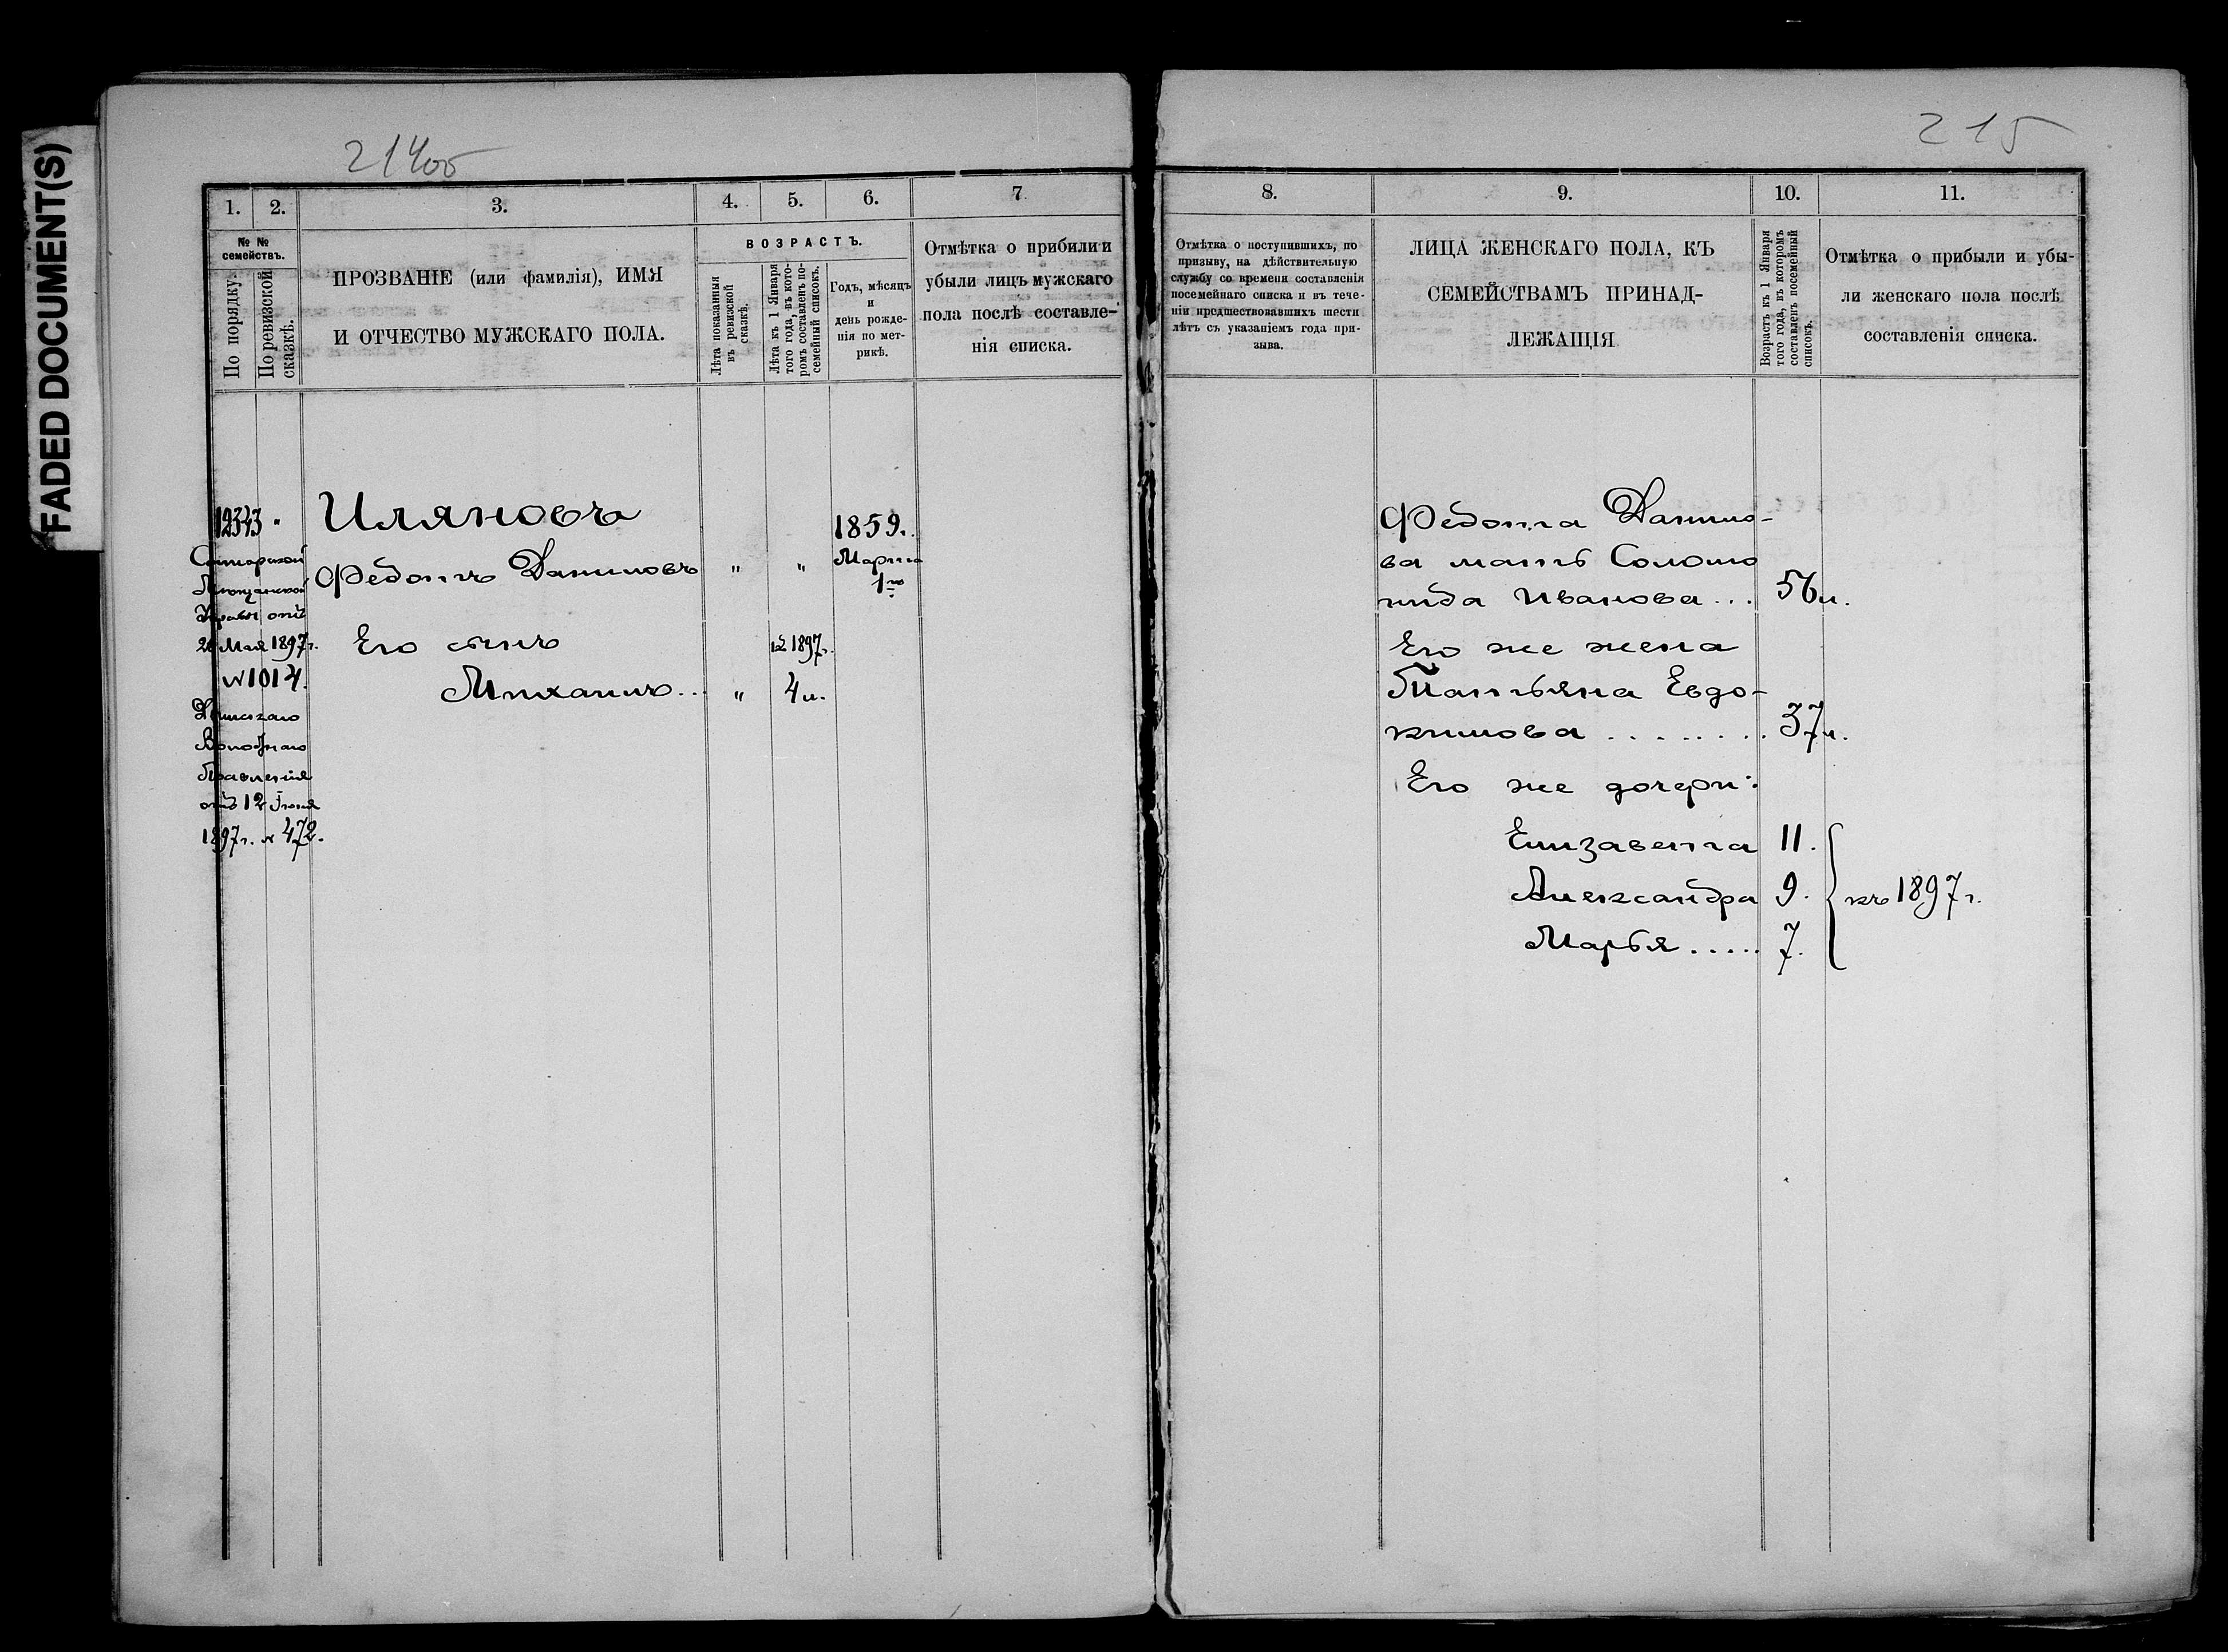 FADED DOCUMENT(S)
214об
1.
2.
3.
4.
5.
6.
7
№ №
семействъ.
По порядку.
По ревизской
сказкѣ.
ПРОЗВАНІЕ (или фамилія), ИМЯ
И ОТЧЕСТВО МУЖСКАГО ПОЛА.
ВОЗРАСТЪ.
Лѣта показанныя
въ ревизской
сказкѣ.
Лѣта къ 1 Января
того года, въ кото-
ромъ составленъ по-
семейный списокъ.
Годъ, мѣсяцъ
и
день рожде-
нія по мет-
рикѣ.
Отмѣтка о прибыли и
убыли лицъ мужскаго
пола послѣ составле-
нія списка.
12343 "
Самарской
Мѣщанской
Управы отъ
26 Мая 1897г.
№ 1014.
Волостнаго
Правленія
отъ 12 Іюня
1897г. № 472.
Иляновъ
Федотъ Даниловъ " "
1859г.
Марта
1го
Его сынъ
къ 1897г.
Михаилъ... " 4л.
215
8.
9.
10.
11.
Отмѣтка о поступившихъ, по
призыву, на дѣйствительную
службу со времени составленія
посемейнаго списка и въ тече-
ніи предшествовавшихъ шести
лѣтъ съ указаніемъ года при-
зыва.
ЛИЦА ЖЕНСКАГО ПОЛА, КЪ
СЕМЕЙСТВАМЪ ПРИНАД-
ЛЕЖАЩІЯ
Возрастъ къ 1 Января
того года, въ которомъ
составленъ посемейный
списокъ.
Отмѣтка о прибыли и убы-
ли женскаго пола послѣ
составленія списка.
Федота Данило-
ва мать Соломо
нида Иванова... 56л.
Его же жена
Татьяна Евдо-
кимова ........ 37л.
Его же дочери:
Елизавета 11.
Александра 9. къ 1897г.
Марья ..... 7.